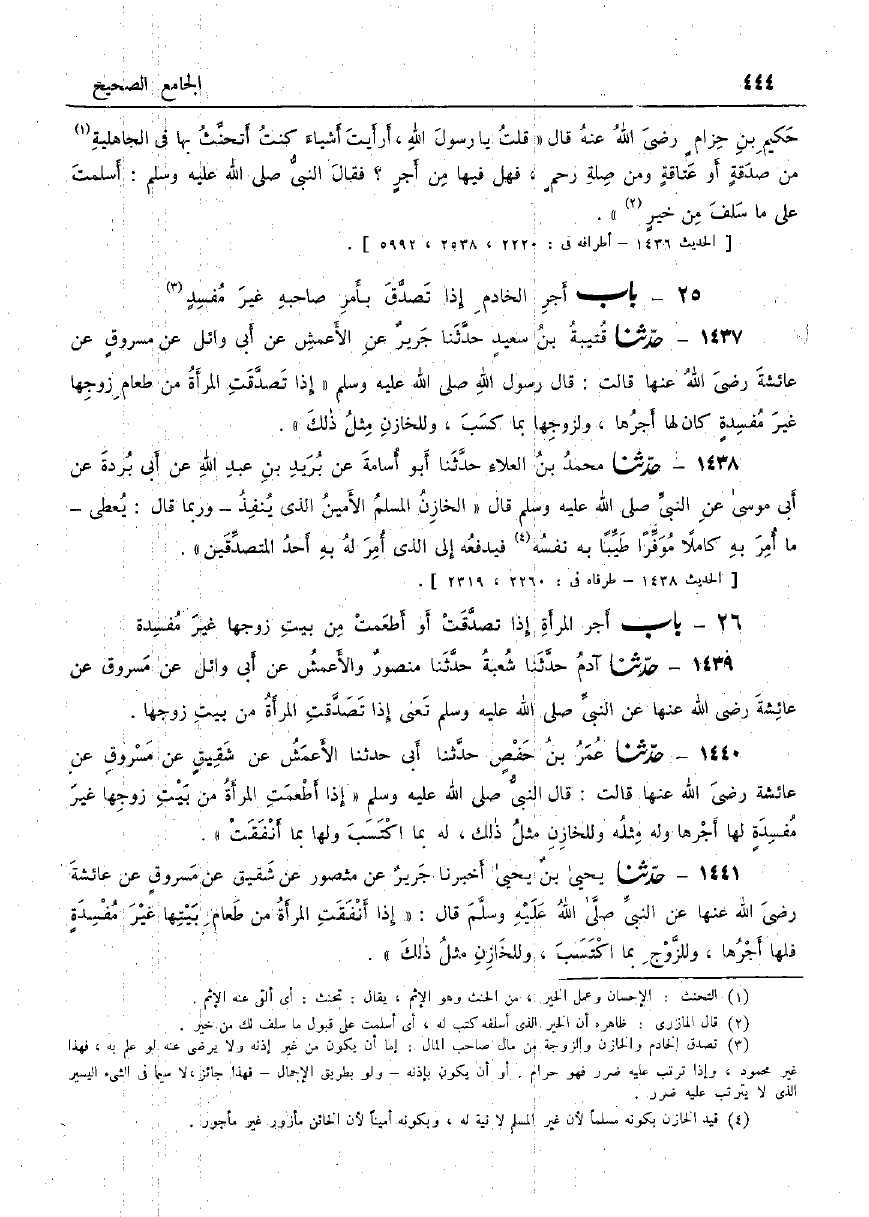 ٤٤٤ الجامع الصحيح
حَكيمِ بنِ حِزامٍ رضىَ اللهُ عنهُ قال « قلتُ يا رسولَ اللهِ ، أرأيتَ أشياءَ كنتُ أَتحنَّثُ بها فى الجاهليةِ (١)
من صدَقةٍ أو عَتاقةٍ ومن صِلةِ رحمٍ ، فهل فيها مِن أجرٍ ؟ فقالَ النبىُّ صلى الله عليه وسلم : أسلمتَ
على ما سَلفَ مِن خيرٍ (٢) » .
[ الحديث ١٤٣٦ – أطرافه فى : ٢٢٢٠ ، ٢٥٣٨ ، ٥٩٩٢ ] .
٢٥ – باب أجرِ الخادمِ إذا تَصدَّقَ بأمرِ صاحبهِ غيرَ مُفسِدٍ (٣)
١٤٣٧ – حدّثنا قُتيبةُ بنُ سعيدٍ حدَّثَنا جَريرٌ عنِ الأعمشِ عن أبى وائل عن مسروقٍ عن
عائشةَ رضىَ اللهُ عنها قالت : قال رسول اللهِ صلى الله عليه وسلم « إذا تَصدَّقَتِ المرأةُ من طعامِ زوجِها
غيرَ مُفسِدةٍ كان لها أجرُها ، ولزوجِها بما كسَبَ ، وللخازنِ مِثلُ ذٰلكَ » .
١٤٣٨ – حدّثنا محمدُ بنُ العلاءِ حدَّثَنا أبو أُسامةَ عن بُرَيدِ بنِ عبدِ اللهِ عن أبى بُردةَ عن
أبى موسىٰ عنِ النبىِّ صلى الله عليه وسلم قال « الخازِنُ المسلمُ الأمينُ الذى يُنفِذُ – وربما قال : يُعطى –
ما أُمِرَ بهِ كاملًا مُوَفَّرًا طَيِّبًا به نفسُه (٤) فيدفعُه إلى الذى أُمِرَ لهُ بهِ أحدُ المتصدِّقَين » .
[ الحديث ١٤٣٨ – طرفاه فى : ٢٢٦٠ ، ٢٣١٩ ] .
٢٦ – باب أجر المرأةِ إذا تصدَّقَتْ أو أطعَمتْ مِن بيتِ زوجها غيرَ مُفسِدة
١٤٣٩ – حدّثنا آدمُ حدَّثَنا شُعبةُ حدَّثَنا منصورٌ والأعمشُ عن أبى وائل عن مَسروق عن
عائِشةَ رضى الله عنها عن النبىِّ صلى الله عليه وسلم تَعنى إذا تَصَدَّقتِ المرأةُ من بيتِ زوجها .
١٤٤٠ – حدّثنا عُمَرُ بنُ حَفْصٍ حدَّثنا أبى حدثنا الأعمَشُ عن شَقِيقٍ عن مَسْروقٍ عن
عائشة رضىَ الله عنها قالت : قال النبىُّ صلى الله عليه وسلم « إذا أَطْعمَتِ المرأةُ من بَيْتِ زوجِها غيرَ
مُفْسِدَةٍ لها أجْرها وله مِثلُه وللخازنِ مثلُ ذلك ، له بما اكْتَسَبَ ولها بما أَنْفَقَتْ » .
١٤٤١ – حدّثنا يحيىٰ بنُ يحيىٰ أخبرنا جَريرٌ عن منصور عن شَقيق عن مَسروقٍ عن عائشةَ
رضىَ الله عنها عن النبىِّ صلَّى اللهُ عَلَيْهِ وسلَّمَ قال : « إذا أَنْفَقَتِ المرأةُ من طَعامِ بَيْتِها غَيْرَ مُفْسِدَةٍ
فلها أَجْرُها ، وللزَّوْجِ بما اكْتَسَبَ ، وللخَازِنِ مثلُ ذلكَ » .
(١) التحنث : الإحسان وعمل الخير ، من الحنث وهو الإثم ، يقال : تحنث : أى ألقى عنه الإثم .
(٢) قال المازرى : ظاهره أن الخير الذى أسلفه كتب له ، أى أسلمت على قبول ما سلف لك من خير .
(٣) تصدق الخادم والخازن والزوجة من مال صاحب المال : إما أن يكون من غير إذنه ولا يرضى عنه لو علم به ، فهذا
غير محمود ، وإذا ترتب عليه ضرر فهو حرام . أو أن يكون بإذنه – ولو بطريق الإجمال – فهذا جائز ، لا سيما فى الشىء اليسير
الذى لا يترتب عليه ضرر .
(٤) قيد الخازن بكونه مسلماً لأن غير المسلم لا نية له ، وبكونه أميناً لأن الخائن مأزور غير مأجور .